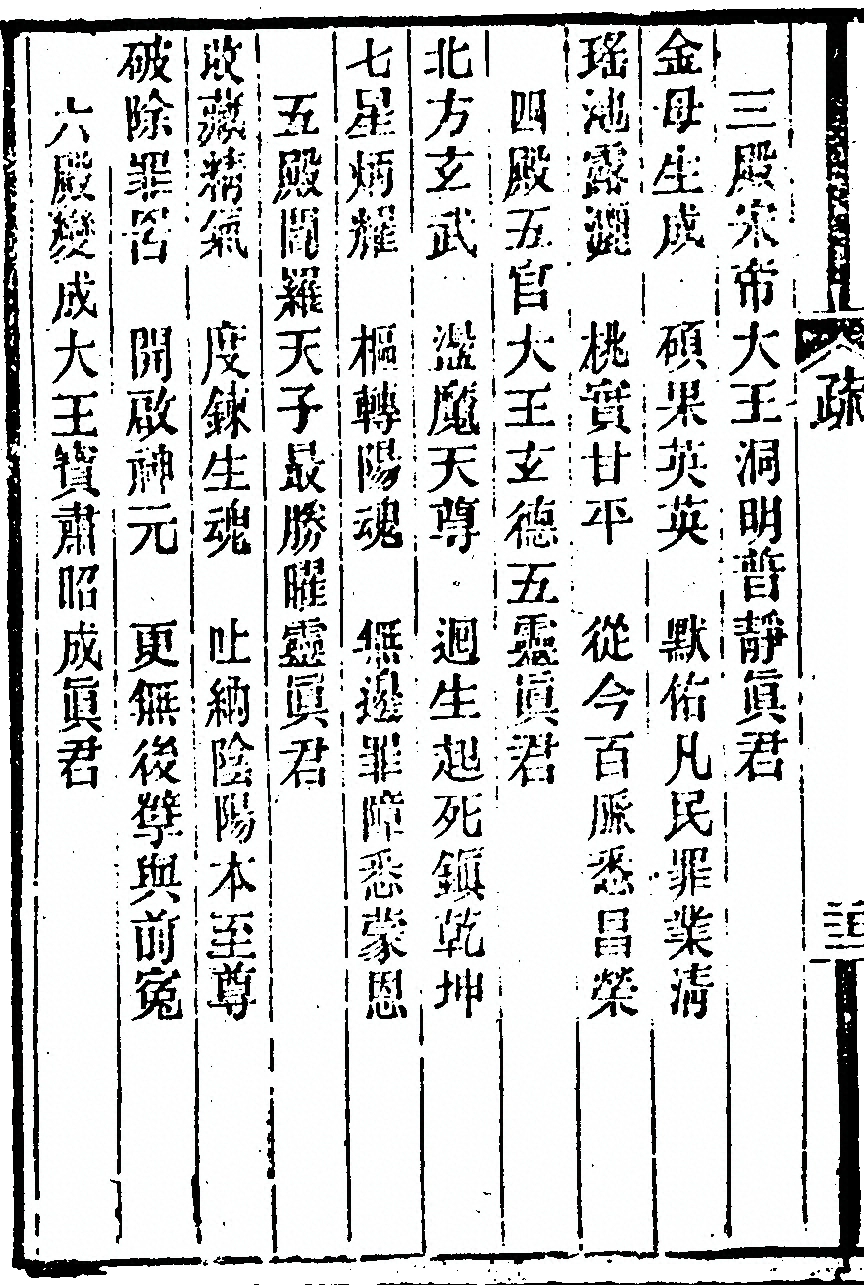 疏
三殿宋帝大王洞明普靜眞君
金母生成　碩果英英　默佑凡民罪業淸
瑤池露灑　桃實甘平　從今百脈悉昌榮
四殿五官大王玄德五靈眞君
北方玄武　盪魔天尊　迴生起死鎭乾坤
七星炳耀　樞轉陽魂　無邊罪障悉蒙恩
五殿閻羅天子最勝曜靈眞君
收藏精氣　度鍊生魂　吐納陰陽本至尊
破除罪咎　開啟神元　更無後孽與前寃
六殿變成大王寶肅昭成眞君